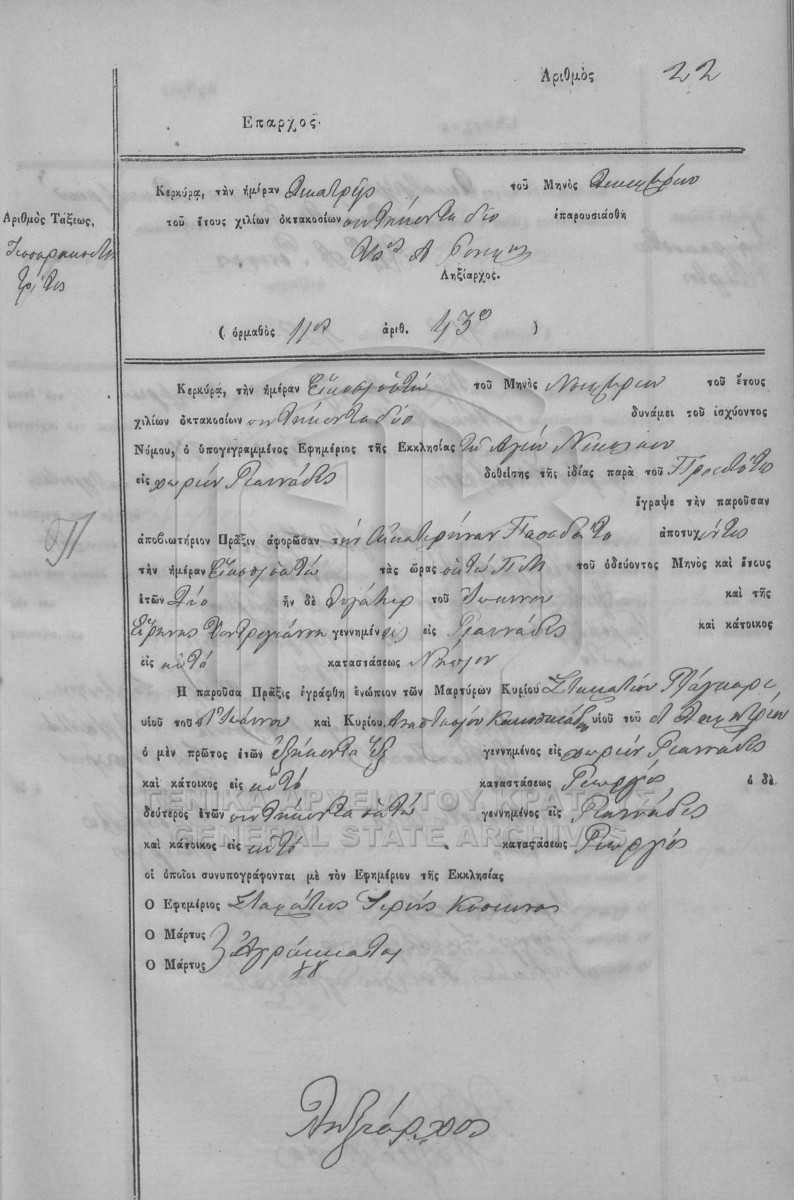 Αριθμὸς 22
Επαρχος.
Κερκύρα, τὴν ἡμέραν δεκατρεῖς τοῦ Μηνὸς Δεκεμβρίου
Αριθμὸς Τάξεως,
τοῦ ἔτους χιλίων ὀκτακοσίων πεντήκοντα δύο ἐπαρουσιάσθη
Τεσσαρακοστὸς
τρίτος
Ληξίαρχος.
( ὁρμαθὸς 11ος ἀριθ. 43 )
Κερκύρα, τὴν ἡμέραν Εἰκοσιοκτώ τοῦ Μηνὸς Νοεμβρίου τοῦ ἔτους
χιλίων ὀκτακοσίων πεντήκοντα δύο δυνάμει τοῦ ἰσχύοντος
Νόμου, ὁ ὑπογεγραμμένος Ἐφημέριος τῆς Ἐκκλησίας τοῦ Ἁγίου Νικολάου
εἰς χωρίον Γιαννάδες δοθείσης τῆς ἰδίας παρὰ τοῦ
ἔγραψε τὴν παροῦσαν
ἀποβιωτήριον Πρᾶξιν ἀφορῶσαν τὴν Αἰκατερίναν ἀποτυχ
τὴν ἡμέραν Εἰκοσιοκτώ τὰς ὥρας ὀκτώ Π.Μ. τοῦ ὁδεύοντος Μηνὸς καὶ ἔτους
ἐτῶν Δύο ἦν δὲ θυγάτηρ τοῦ Ἰωάννου καὶ τῆς
Εἰρήνης Κοντογιάννη γεννημέν εἰς Γιαννάδες καὶ κάτοικος
εἰς αὐτό καταστάσεως Νήπιον
Ἡ παροῦσα Πρᾶξις ἐγράφθη ἐνώπιον τῶν Μαρτύρων Κυρίου
υἱοῦ τοῦ Ἰωάννου καὶ Κυρίου Ἀναστασίου υἱοῦ τοῦ
ὁ μὲν πρῶτος ἐτῶν ἑξήκοντα ἕξ γεννημένος εἰς χωρίον Γιαννάδες
καὶ κάτοικος εἰς αὐτό καταστάσεως Γεωργός ὁ δὲ
δεύτερος ἐτῶν πεντήκοντα ὀκτώ γεννημένος εἰς Γιαννάδες
καὶ κάτοικος εἰς αὐτό καταστάσεως Γεωργός
οἱ ὁποῖοι συνυπογράφονται μὲ τὸν Ἐφημέριον τῆς Ἐκκλησίας
Ὁ Ἐφημέριος Σταμάτιος Ἱερεύς
Ὁ Μάρτυς
Ἀγράμματοι
Ὁ Μάρτυς
Ληξίαρχος
ΓΕΝΙΚΑ ΑΡΧΕΙΑ ΤΟΥ ΚΡΑΤΟΥΣ
GENERAL STATE ARCHIVES